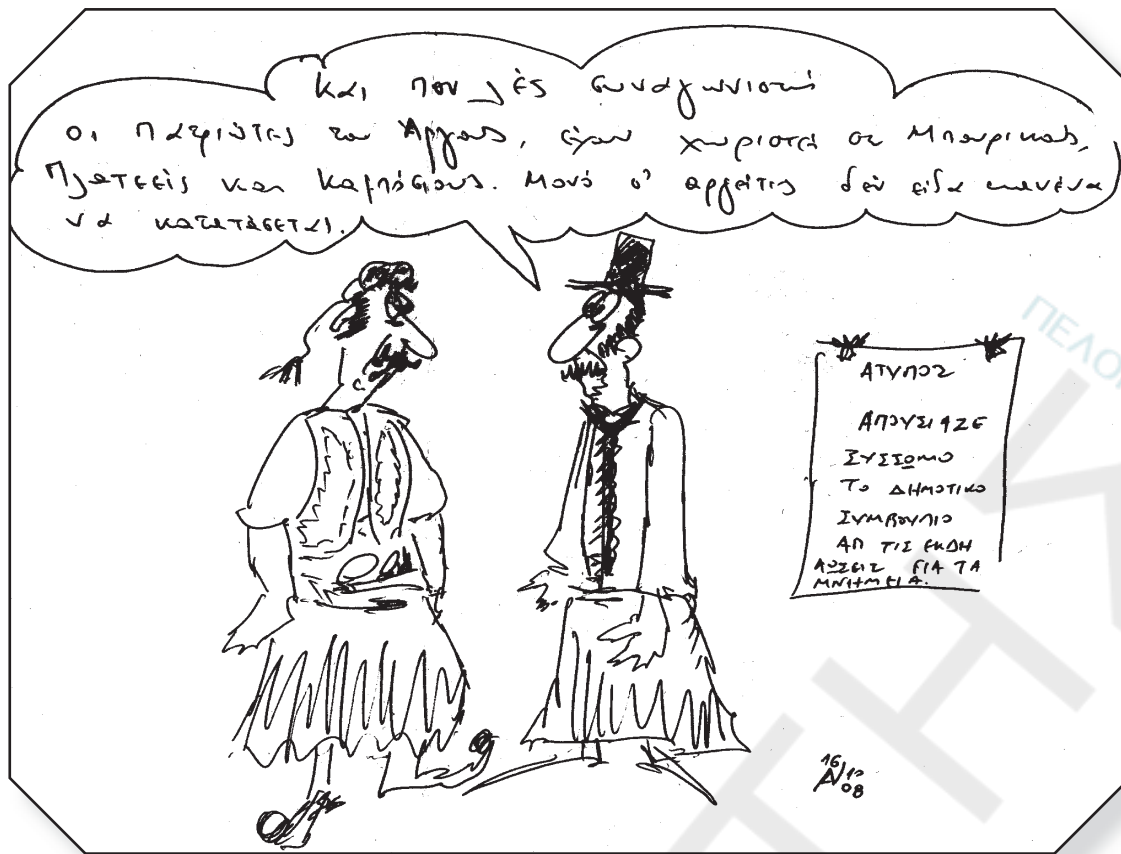 Και που λές συναγωνιστή
οι Πατριώτες του Άργους, έχουν χωριστεί σε Μπουρικους,
Πλατσείς και Καμπόσιους. Μονό σ' αργείτες δέν είδα κανένα
να κατατάσεται.
ΑΤΥΠΟΣ
ΑΠΟΥΣΙΑΖΕ
ΣΥΣΣΩΜΟ
ΤΟ ΔΗΜΟΤΙΚΟ
ΣΥΜΒΟΥΛΙΟ
ΑΠ ΤΙΣ ΕΚΔΗ
ΛΩΣΕΙΣ ΓΙΑ ΤΑ
ΜΝΗΜΕΙΑ.
16/10
08